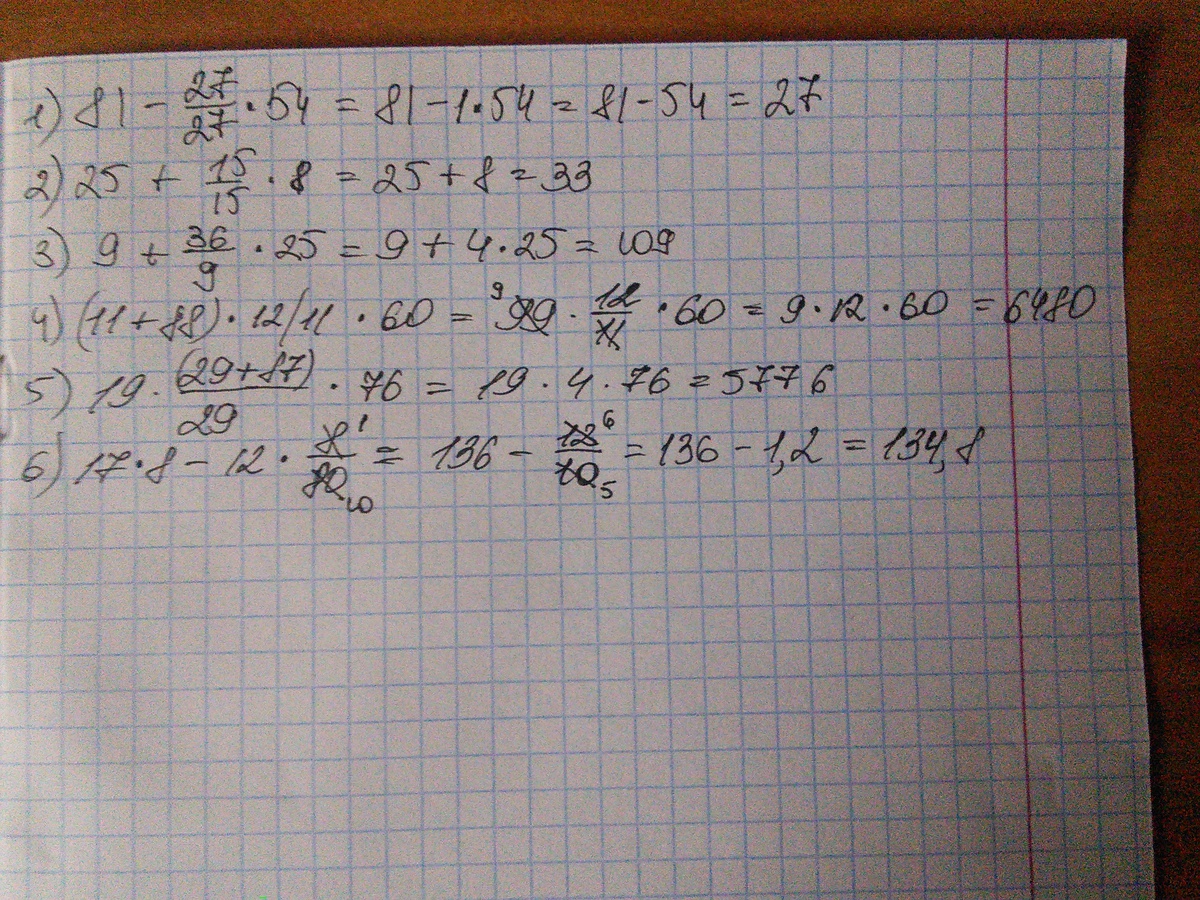 1) 81 - 27/27 · 54 = 81 - 1 · 54 = 81 - 54 = 27
2) 25 + 15/15 · 8 = 25 + 8 = 33
3) 9 + 36/9 · 25 = 9 + 4 · 25 = 109
4) (11 + 88) · 12/11 · 60 = 9 99 · 12/11 · 60 = 9 · 12 · 60 = 6480
5) 19 · (29+87)/29 · 76 = 19 · 4 · 76 = 5776
6) 17 · 8 - 12 · 8 1/80 10 = 136 - 12 6/10 5 = 136 - 1,2 = 134,8